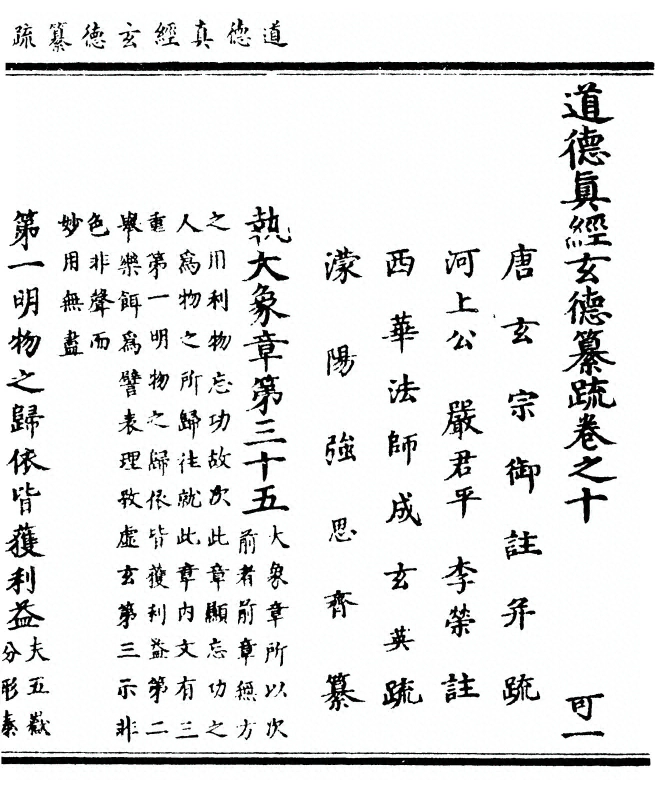 道德真經玄德纂疏
道德眞經玄德纂疏卷之十 可一
唐玄宗御註并疏
河上公 嚴君平 李榮 註
西華法師成玄英疏
濛陽強思齊纂
執大象章第三十五 大象章所以次
前者前章無方
之用利物忘功故次此章顯忘功之
人爲物之所歸往就此章内文有三
重第一明物之歸依皆獲利益第二
舉樂餌爲譬表理致虛玄第三示非
色非聲而
妙用無盡
第一明物之歸依皆獲利益 夫五嶽
分形泰